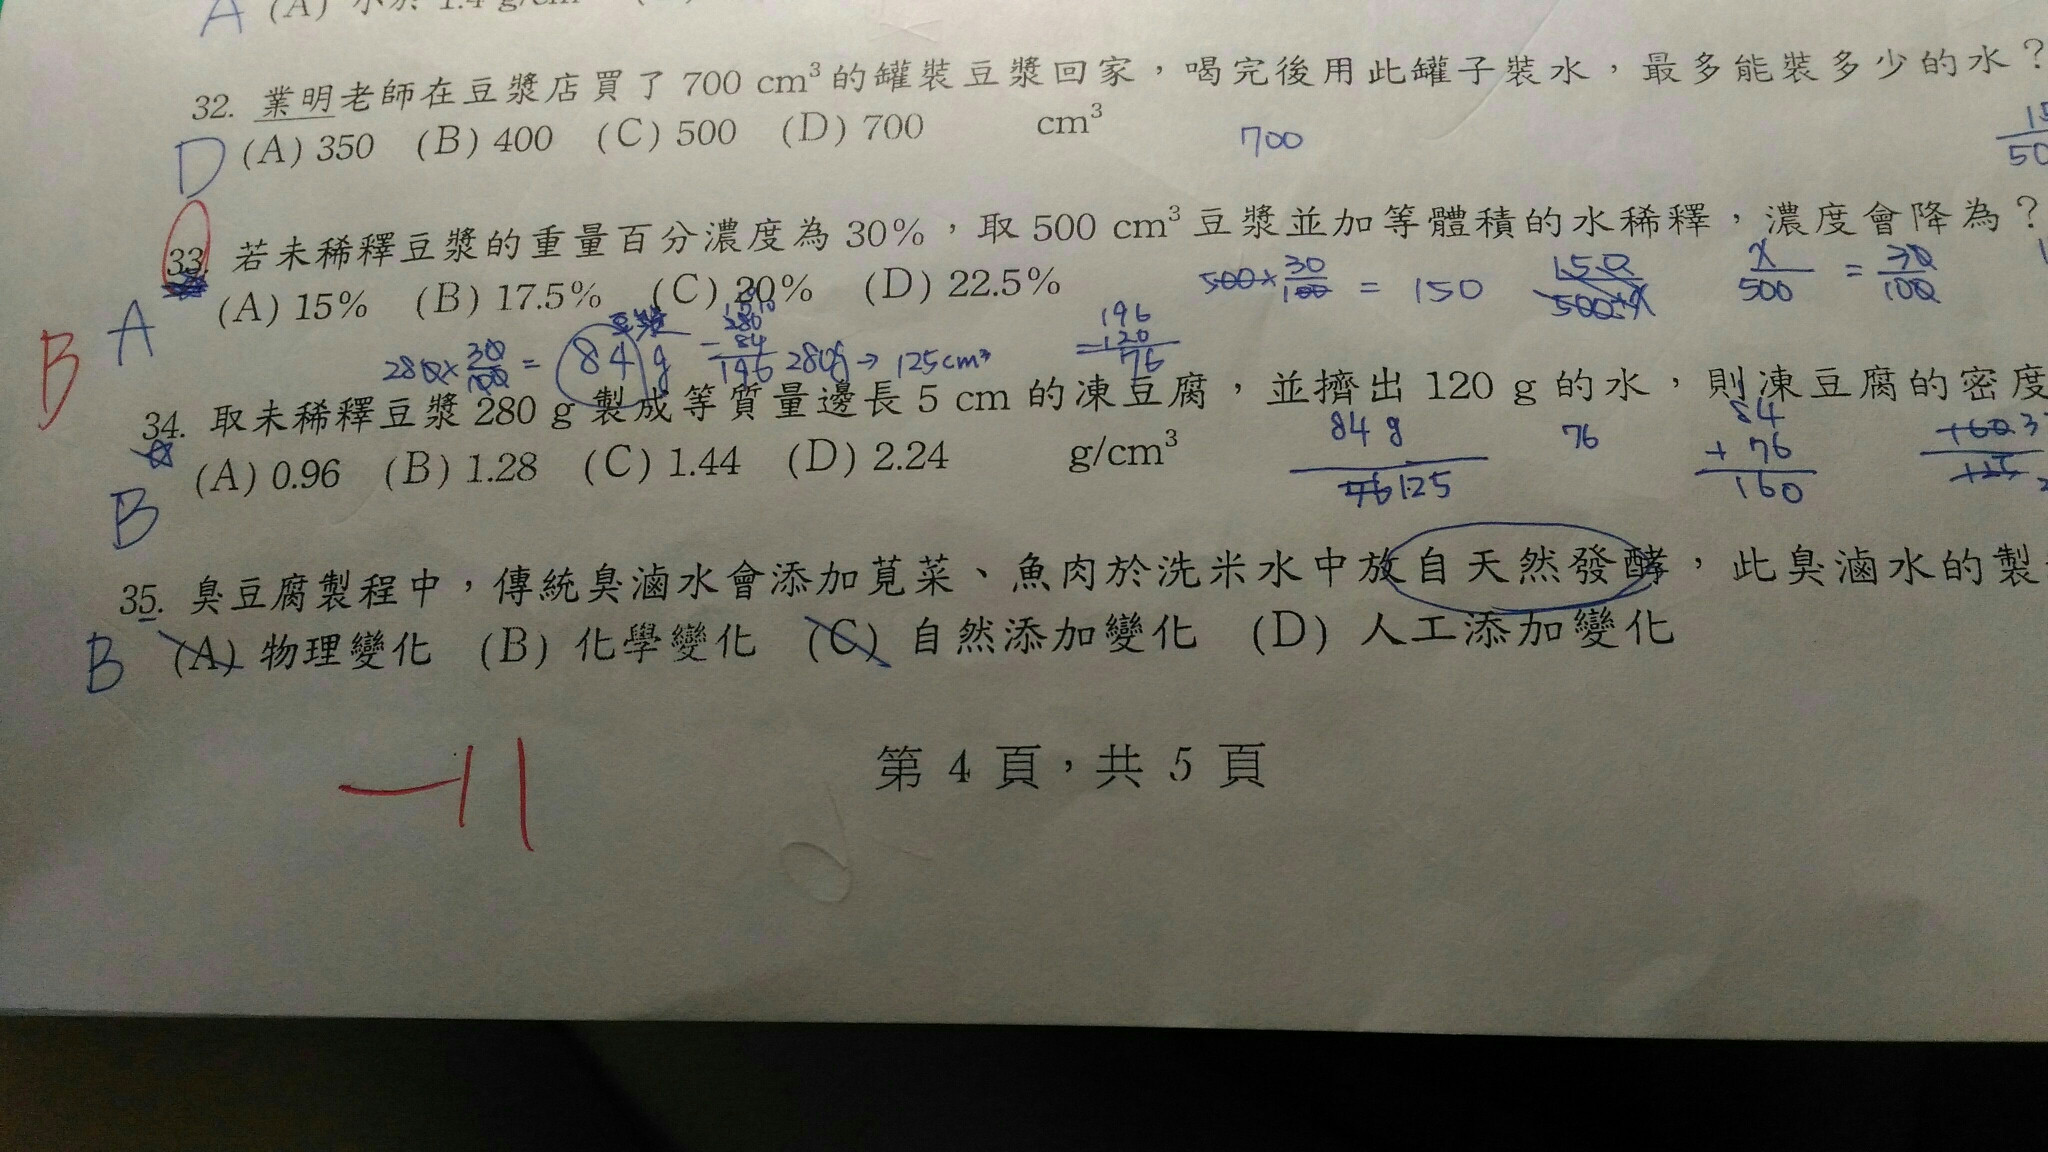 A (A) 小於 1.4 g/cm
32. 業明老師在豆漿店買了 700 cm³ 的罐裝豆漿回家，喝完後用此罐子裝水，最多能裝多少的水？
D (A) 350 (B) 400 (C) 500 (D) 700 cm³ 700
33. 若未稀釋豆漿的重量百分濃度為 30%，取 500 cm³ 豆漿並加等體積的水稀釋，濃度會降為？
A (A) 15% (B) 17.5% (C) 20% (D) 22.5% 500×30/100 = 150 150/500+X X/500 = 30/100
B 280×30/100 = 84 g 豆漿 280 - 84 196 280g→125cm³ 196 120 = 76
34. 取未稀釋豆漿 280 g 製成等質量邊長 5 cm 的凍豆腐，並擠出 120 g 的水，則凍豆腐的密度
B (A) 0.96 (B) 1.28 (C) 1.44 (D) 2.24 g/cm³ 84 g 125 76 84 + 76 160
35. 臭豆腐製程中，傳統臭滷水會添加莧菜、魚肉於洗米水中放自天然發酵，此臭滷水的製
B (A) 物理變化 (B) 化學變化 (C) 自然添加變化 (D) 人工添加變化
-11
第 4 頁，共 5 頁